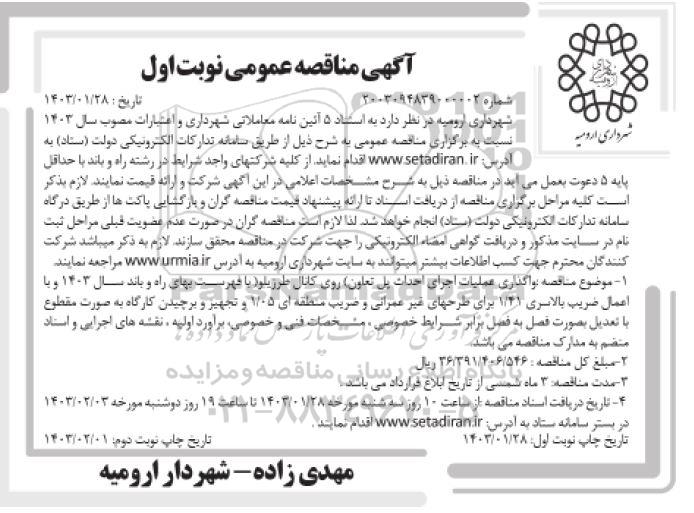 آگهی مناقصه عمومی نوبت اول
شهرداری ارومیه
شماره ۲۰۰۳۰۹۴۸۳۹۰۰۰۰۰۲
تاریخ : ۱۴۰۳/۰۱/۲۸
شهرداری ارومیه در نظر دارد به استناد ۵ آئین نامه معاملاتی شهرداری و اعتبارات مصوب سال ۱۴۰۳
نسبت به برگزاری مناقصه عمومی به شرح ذیل از طریق سامانه تدارکات الکترونیکی دولت (ستاد) به
آدرس: www.setadiran.ir اقدام نماید. از کلیه شرکتهای واجد شرایط در رشته راه و باند با حداقل
پایه ۵ دعوت بعمل می آید در مناقصه ذیل به شرح مشخصات اعلامی در این آگهی شرکت و ارائه قیمت نمایند. لازم بذکر
است کلیه مراحل برگزاری مناقصه از دریافت اسناد تا ارائه پیشنهاد قیمت مناقصه گران و بازگشایی پاکت ها از طریق درگاه
سامانه تدارکات الکترونیکی دولت (ستاد) انجام خواهد شد. لذا لازم است مناقصه گران در صورت عدم عضویت قبلی مراحل ثبت
نام در سایت مذکور و دریافت گواهی امضاء الکترونیکی را جهت شرکت در مناقصه محقق سازند. لازم به ذکر میباشد شرکت
کنندگان محترم جهت کسب اطلاعات بیشتر میتوانند به سایت شهرداری ارومیه به آدرس www.urmia.ir مراجعه نمایند.
۱- موضوع مناقصه :واگذاری عملیات اجرای احداث پل تعاون) روی کانال طرزیلو( با فهرست بهای راه و باند سال ۱۴۰۳ و با
اعمال ضریب بالاسری ۱/۴۱ برای طرحهای غیر عمرانی و ضریب منطقه ای ۱/۰۵ و تجهیز و برچیدن کارگاه به صورت مقطوع
با تعدیل بصورت فصل به فصل برابر شرایط خصوصی ، مشخصات فنی و خصوصی، برآورد اولیه ، نقشه های اجرایی و اسناد
منضم به مدارک مناقصه می باشد.
۲-مبلغ کل مناقصه : ۳۶/۳۹۱/۴۰۶/۵۴۶ ریال
۳-مدت مناقصه: ۳ ماه شمسی از تاریخ ابلاغ قرارداد می باشد
۴- تاریخ دریافت اسناد مناقصه :از ساعت ۱۰ روز سه شنبه مورخه ۱۴۰۳/۰۱/۲۸ تا ساعت ۱۹ روز دوشنبه مورخه ۱۴۰۳/۰۲/۰۳
در بستر سامانه ستاد به آدرس: www.setadiran.ir اقدام نمایند .
تاریخ چاپ نوبت اول: ۱۴۰۳/۰۱/۲۸
تاریخ چاپ نوبت دوم: ۱۴۰۳/۰۲/۰۱
مهدی زاده – شهردار ارومیه
پایگاه اطلاع رسانی مناقصه و مزایده
۰۲۱-۸۸۳۴۹۶۷۰-۵